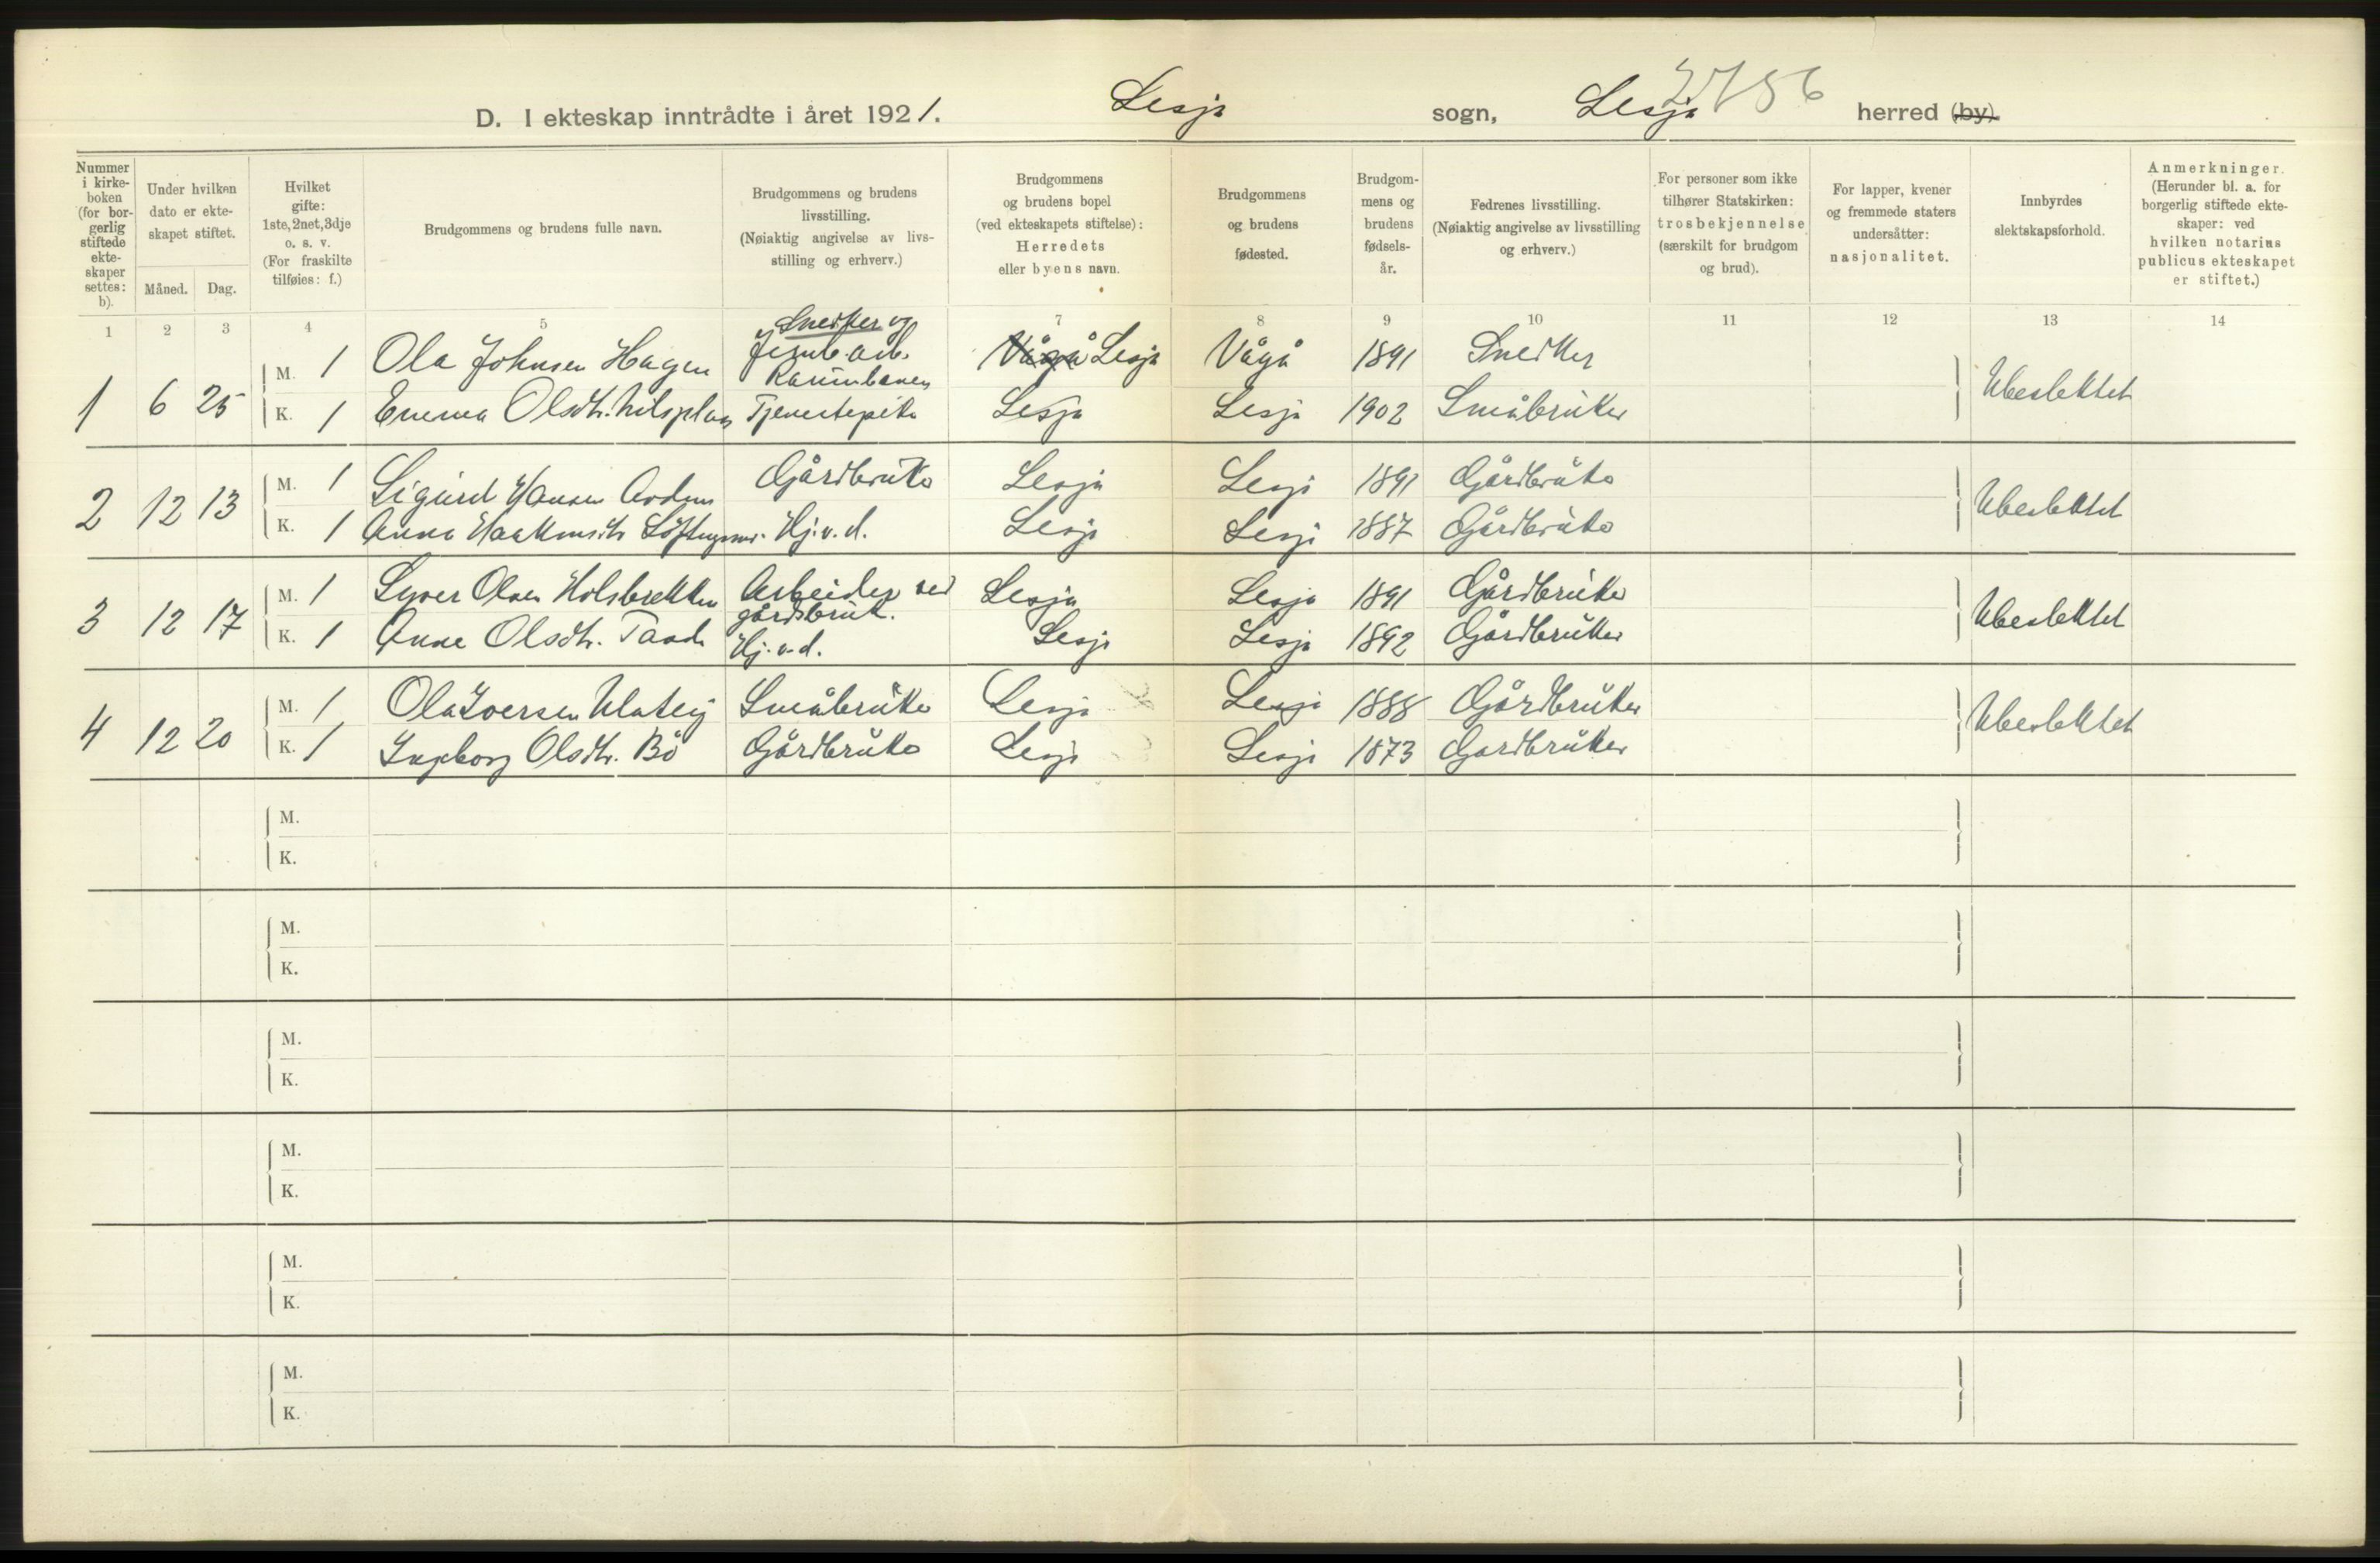 2756
D. I ekteskap inntrådte i året 1921. Lesja sogn, Lesja herred (by).
Nummer i kirkeboken (for borgerlig stiftede ekteskaper settes: b).
Under hvilken dato er ekteskapet stiftet.
Måned. Dag.
Hvilket gifte: 1ste, 2net, 3dje o. s. v. (For fraskilte tilføies: f.)
Brudgommens og brudens fulle navn.
Brudgommens og brudens livsstilling. (Nøiaktig angivelse av livsstilling og erhverv.)
Brudgommens og brudens bopel (ved ekteskapets stiftelse): Herredets eller byens navn.
Brudgommens og brudens fødested.
Brudgommens og brudens fødselsår.
Fedrenes livsstilling. (Nøiaktig angivelse av livsstilling og erhverv.)
For personer som ikke tilhører Statskirken: trosbekjennelse (særskilt for brudgom og brud).
For lapper, kvener og fremmede staters undersåtter: nasjonalitet.
Innbyrdes slektskapsforhold.
Anmerkninger. (Herunder bl. a. for borgerlig stiftede ekteskaper: ved hvilken notarius publicus ekteskapet er stiftet.)
1 2 3 4 5 6 7 8 9 10 11 12 13 14
1 6 25 M. 1 Ola Johnsen Hagen Snedker og jernb. arb. Raumabanen Vågå Lesja Vågå 1891 Snedker Ubeslektet
K. 1 Emma Olsdtr. Tjenestepike Lesja Lesja 1902 Småbruker
2 12 13 M. 1 Sigurd Hansen Gårdbruker Lesja Lesja 1891 Gårdbruker Ubeslektet
K. 1 Anne Haakonsdtr. Hj.v.d. Lesja Lesja 1887 Gårdbruker
3 12 17 M. 1 Syver Olsen Holsbrekken Arbeider ved gårdsbruk. Lesja Lesja 1891 Gårdbruker Ubeslektet
K. 1 Anne Olsdtr. Hj.v.d. Lesja Lesja 1892 Gårdbruker
4 12 20 M. 1 Ola Iversen Ulateig Småbruker Lesja Lesja 1888 Gårdbruker Ubeslektet
K. 1 Ingeborg Olsdtr. Bö Gårdbruker Lesja Lesja 1873 Gardbruker
M.
K.
M.
K.
M.
K.
M.
K.
M.
K.
M.
K.